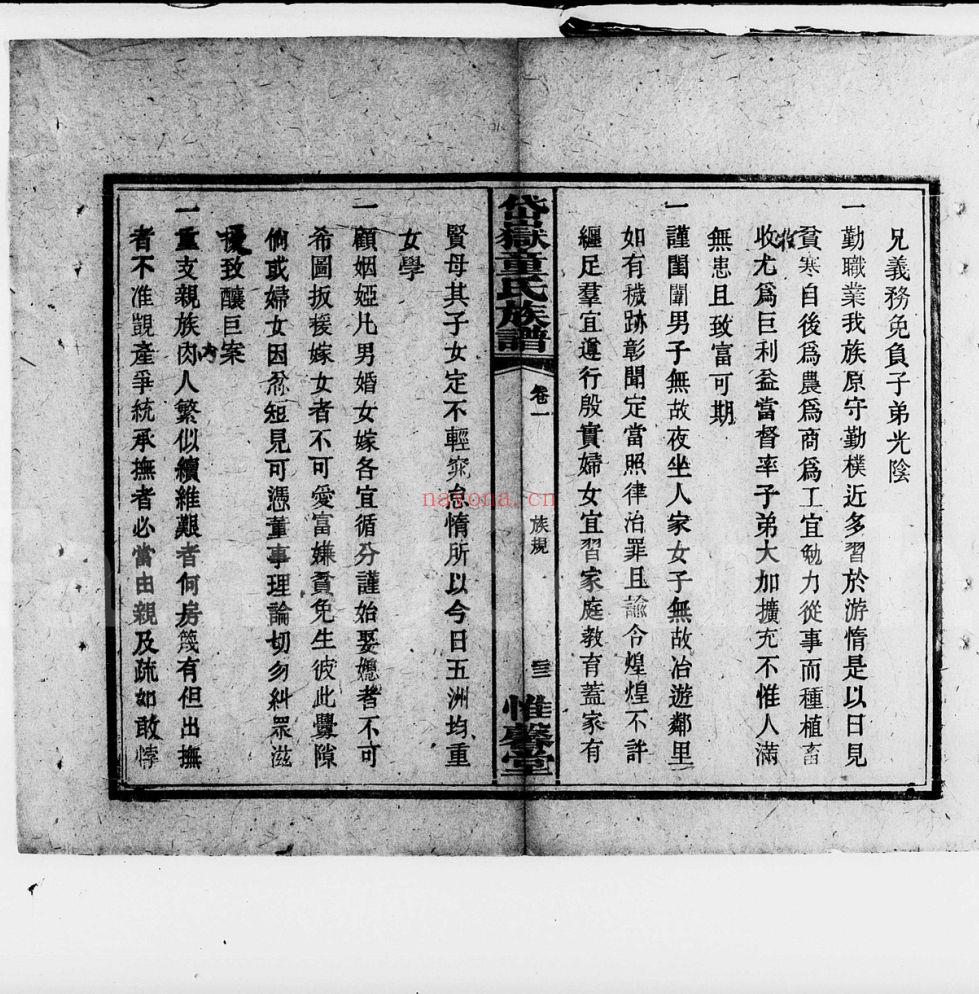 兄義務免負子弟光陰
一勤職業我族原守勤樸近多習於游惰是以日見
貧寒自後爲農爲商爲工宜勉力從事而種植畜
牧
收尤爲巨利益當督率子弟大加擴充不惟人滿
無患且致富可期
一謹閨閫男子無故夜坐人家女子無故冶遊鄰里
如有穢跡彰聞定當照律治罪且諭令煌煌不許
纏足羣宜遵行殷實婦女宜習家庭教育蓋家有
岱嶽董氏族譜
卷一
族規
惟馨堂
賢母其子女定不輕窕怠惰所以今日五洲均重
女學
一顧姻婭凡男婚女嫁各宜循分謹始娶媳者不可
希圖扳援嫁女者不可愛富嫌貧免生彼此釁隙
倘或婦女因忿短見可憑董事理論切勿糾眾滋
擾致釀巨案
一重支親族內
肉人繁似續維艱者何房篾有但出撫
者不准覬產爭統承撫者必當由親及疏如敢悖
nayona.cn